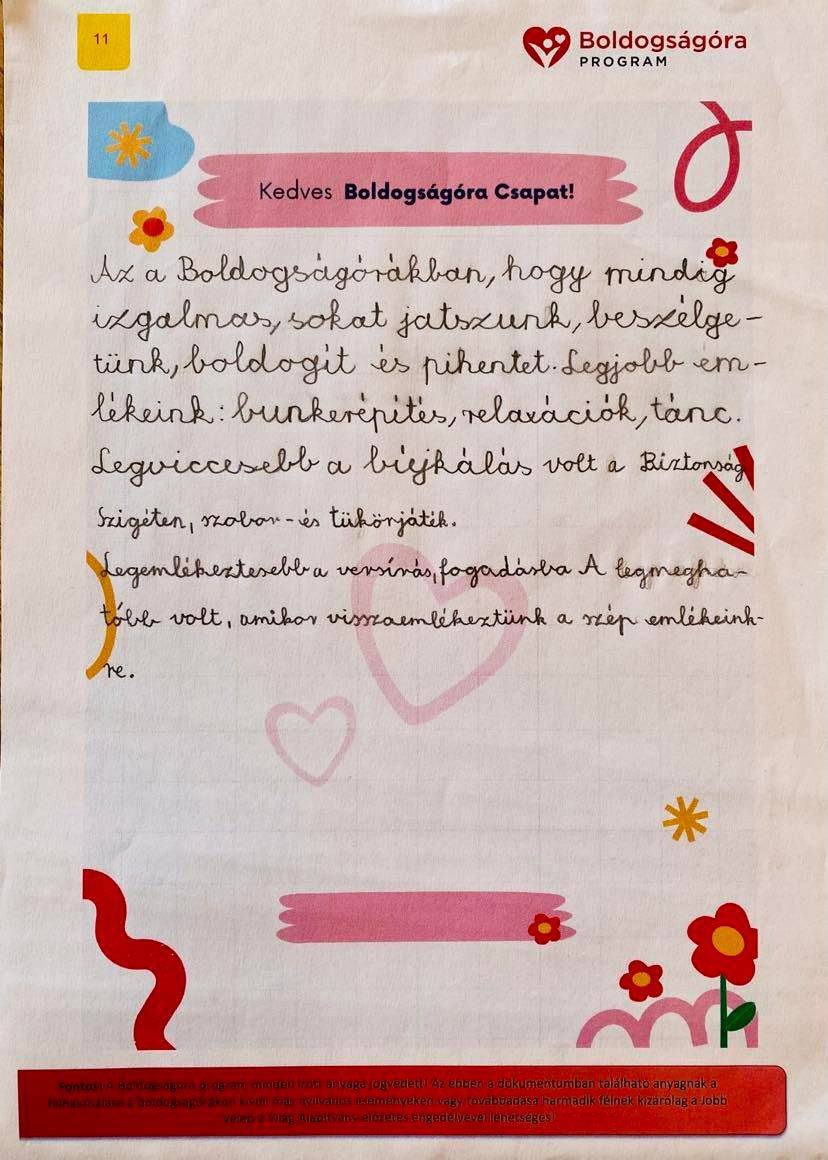 11
Boldogságóra
PROGRAM
Kedves Boldogságóra Csapat!
Az a Boldogságórákban, hogy mindig
izgalmas, sokat jatszunk, beszélge-
tünk, boldogít és pihentet. Legjobb em-
lékeink: bunkerépítés, relaxációk, tánc.
Legviccesebb a biejkálás volt a Biztonság
Szigéten, szobor- és tükörjáték.
Legemlékeztesebb a versírás, fogadásba A legmegha-
tóbb volt, amikor visszaemlékeztünk a szép emlékeink-
re.
Fontos! A Boldogságóra program minden írott anyaga jogvédett! Az ebben a dokumentumban található anyagnak a
felhasználása a boldogságórákon kívüli más nyilvános eseményeken vagy továbbadása harmadik félnek kizárólag a Jobb
Veled a Világ Alapítvány előzetes engedélyével lehetséges!